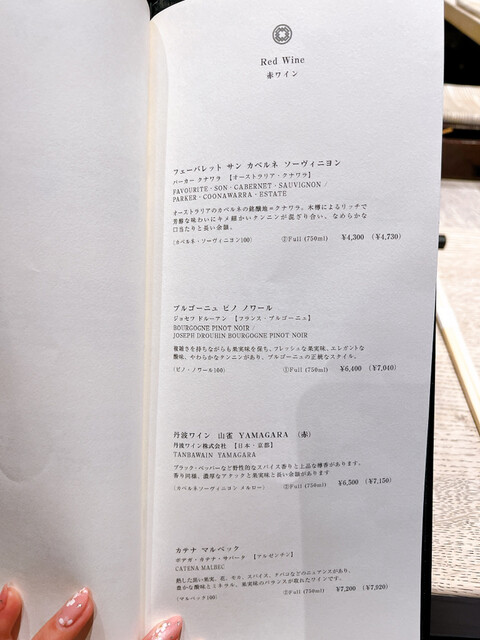 Red Wine
赤ワイン
フェーバレット サン カベルネ ソーヴィニヨン
パーカー クナワラ 【オーストラリア・クナワラ】
FAVOURITE・SON・CABERNET・SAUVIGNON /
PARKER・COONAWARRA・ESTATE
オーストラリアのカベルネの銘醸地=クナワラ。木樽によるリッチで
芳醇な味わいにキメ細かいタンニンが混ざり合い、なめらかな
口当たりと長い余韻。
(カベルネ・ソーヴィニヨン100) ②Full (750ml) ¥4,300 (¥4,730)
ブルゴーニュ ピノ ノワール
ジョセフ ドルーアン 【フランス・ブルゴーニュ】
BOURGOGNE PINOT NOIR /
JOSEPH DROUHIN BOURGOGNE PINOT NOIR
複雑さを持ちながらも果実味を保ち、フレッシュな果実味、エレガントな
酸味、やわらかなタンニンがあり、ブルゴーニュの正統なスタイル。
(ピノ・ノワール100) Full (750ml) ¥6,400 (¥7,040)
丹波ワイン 山雀 YAMAGARA (赤)
丹波ワイン株式会社 【日本・京都】
TANBAWAIN YAMAGARA
ブラック・ペッパーなど野性的なスパイス香りと上品な樽香があります。
香り同様、濃厚なアタックと果実味と長い余韻があります
(カベルネソーヴィニヨン メルロー) Full (750ml) ¥6,500 (¥7,150)
カテナ マルベック
ボデガ・カテナ・サパータ 【アルゼンチン】
CATENA MALBEC
熟した黒い果実、花、モカ、スパイス、タバコなどのニュアンスがあり、
豊かな酸味とミネラル、果実味のバランスが取れたワインです。
(マルベック100) Full (750ml) ¥7,200 (¥7,920)